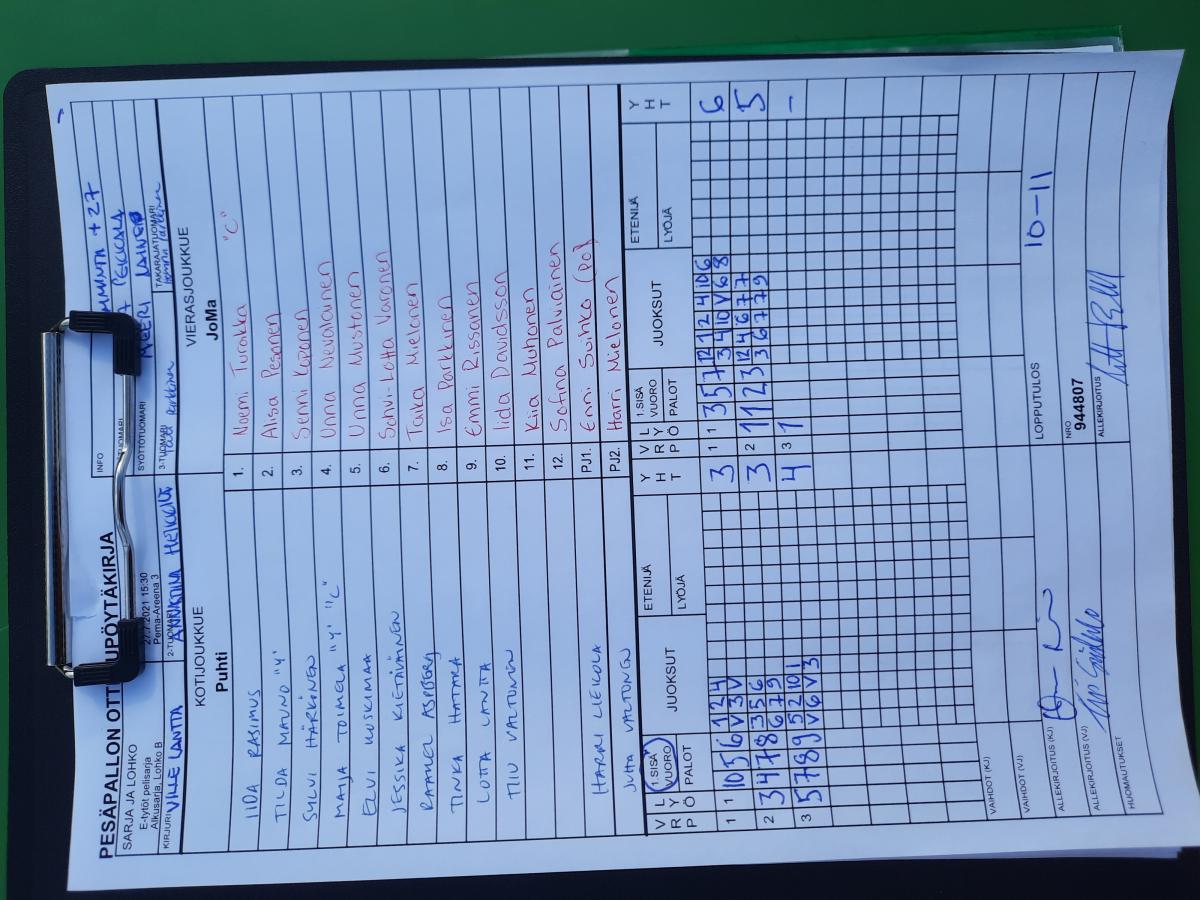 PESÄPALLON OTT UPÖYTÄKIRJA
SARJA JA LOHKO
E-tytöt pelisarja
Alkusarja, Lohko B
27.7.2021 15:30
Pema-Areena 3
INFO
+ 27
TUOMARI
PEKKALA
KIRJURI VILLE LANTTA
2-TUOMARI
SYÖTTÖTUOMARI
MEERI LAINE
3-TUOMARI
TAKARAJATUOMARI
KOTIJOUKKUE
Puhti
VIERASJOUKKUE
JoMa
IIDA RASIMUS 1. Noemi Turakka "C"
TILDA MAUNO "Y" 2. Alisa Pesonen
SYLVI HÄRKINEN 3. Senni Koponen
MAIJA TOIMELA "Y" "C" 4. Unna Nevalainen
ELVI UUSKIMAA 5. Unna Mustonen
JESSIKA KIETÄVÄINEN 6. Sohvi-Lotta Varonen
RAAKEL ASPBERG 7. Taika Mielonen
TINKA HATARA 8. Isa Parkkinen
LOTTA LANTTA 9. Emmi Rissanen
TIIU VALTONEN 10. Iida Davidsson
11. Kiia Muhonen
12. Sofina Palviainen
HARRI LEIKOLA PJ1. Enni Surkka (PO)
JUTTA VALTONEN PJ2. Harri Mielonen
V R P L Y Ö 1.SISÄ VUORO PALOT JUOKSUT ETENIJÄ LYÖJÄ Y H T V R P L Y Ö 1.SISÄ VUORO PALOT JUOKSUT ETENIJÄ LYÖJÄ Y H T
1 1 10 5 6 1 2 4 3 1 1 3 5 7 12 12 4 10 6 6
V 3 V 3 4 10 V 6 8
2 3 4 7 8 3 5 6 3 2 11 2 3 12 4 6 7 7 5
6 7 9 3 6 7 7 9
3 5 7 8 9 5 2 10 1 4 3 1 -
V 6 V 3
VAIHDOT (KJ)
VAIHDOT (VJ)
ALLEKIRJOITUS (KJ)
LOPPUTULOS 10-11
ALLEKIRJOITUS (VJ)
NRO
944807
HUOMAUTUKSET
ALLEKIRJOITUS